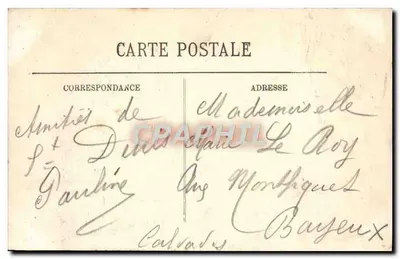 CARTE POSTALE
CORRESPONDANCE
ADRESSE
Amitiés de
St Denis
Pauline
Mademoiselle
Marie Le Roy
Montfiquet
Bayeux
Calvados
CPAPHIL